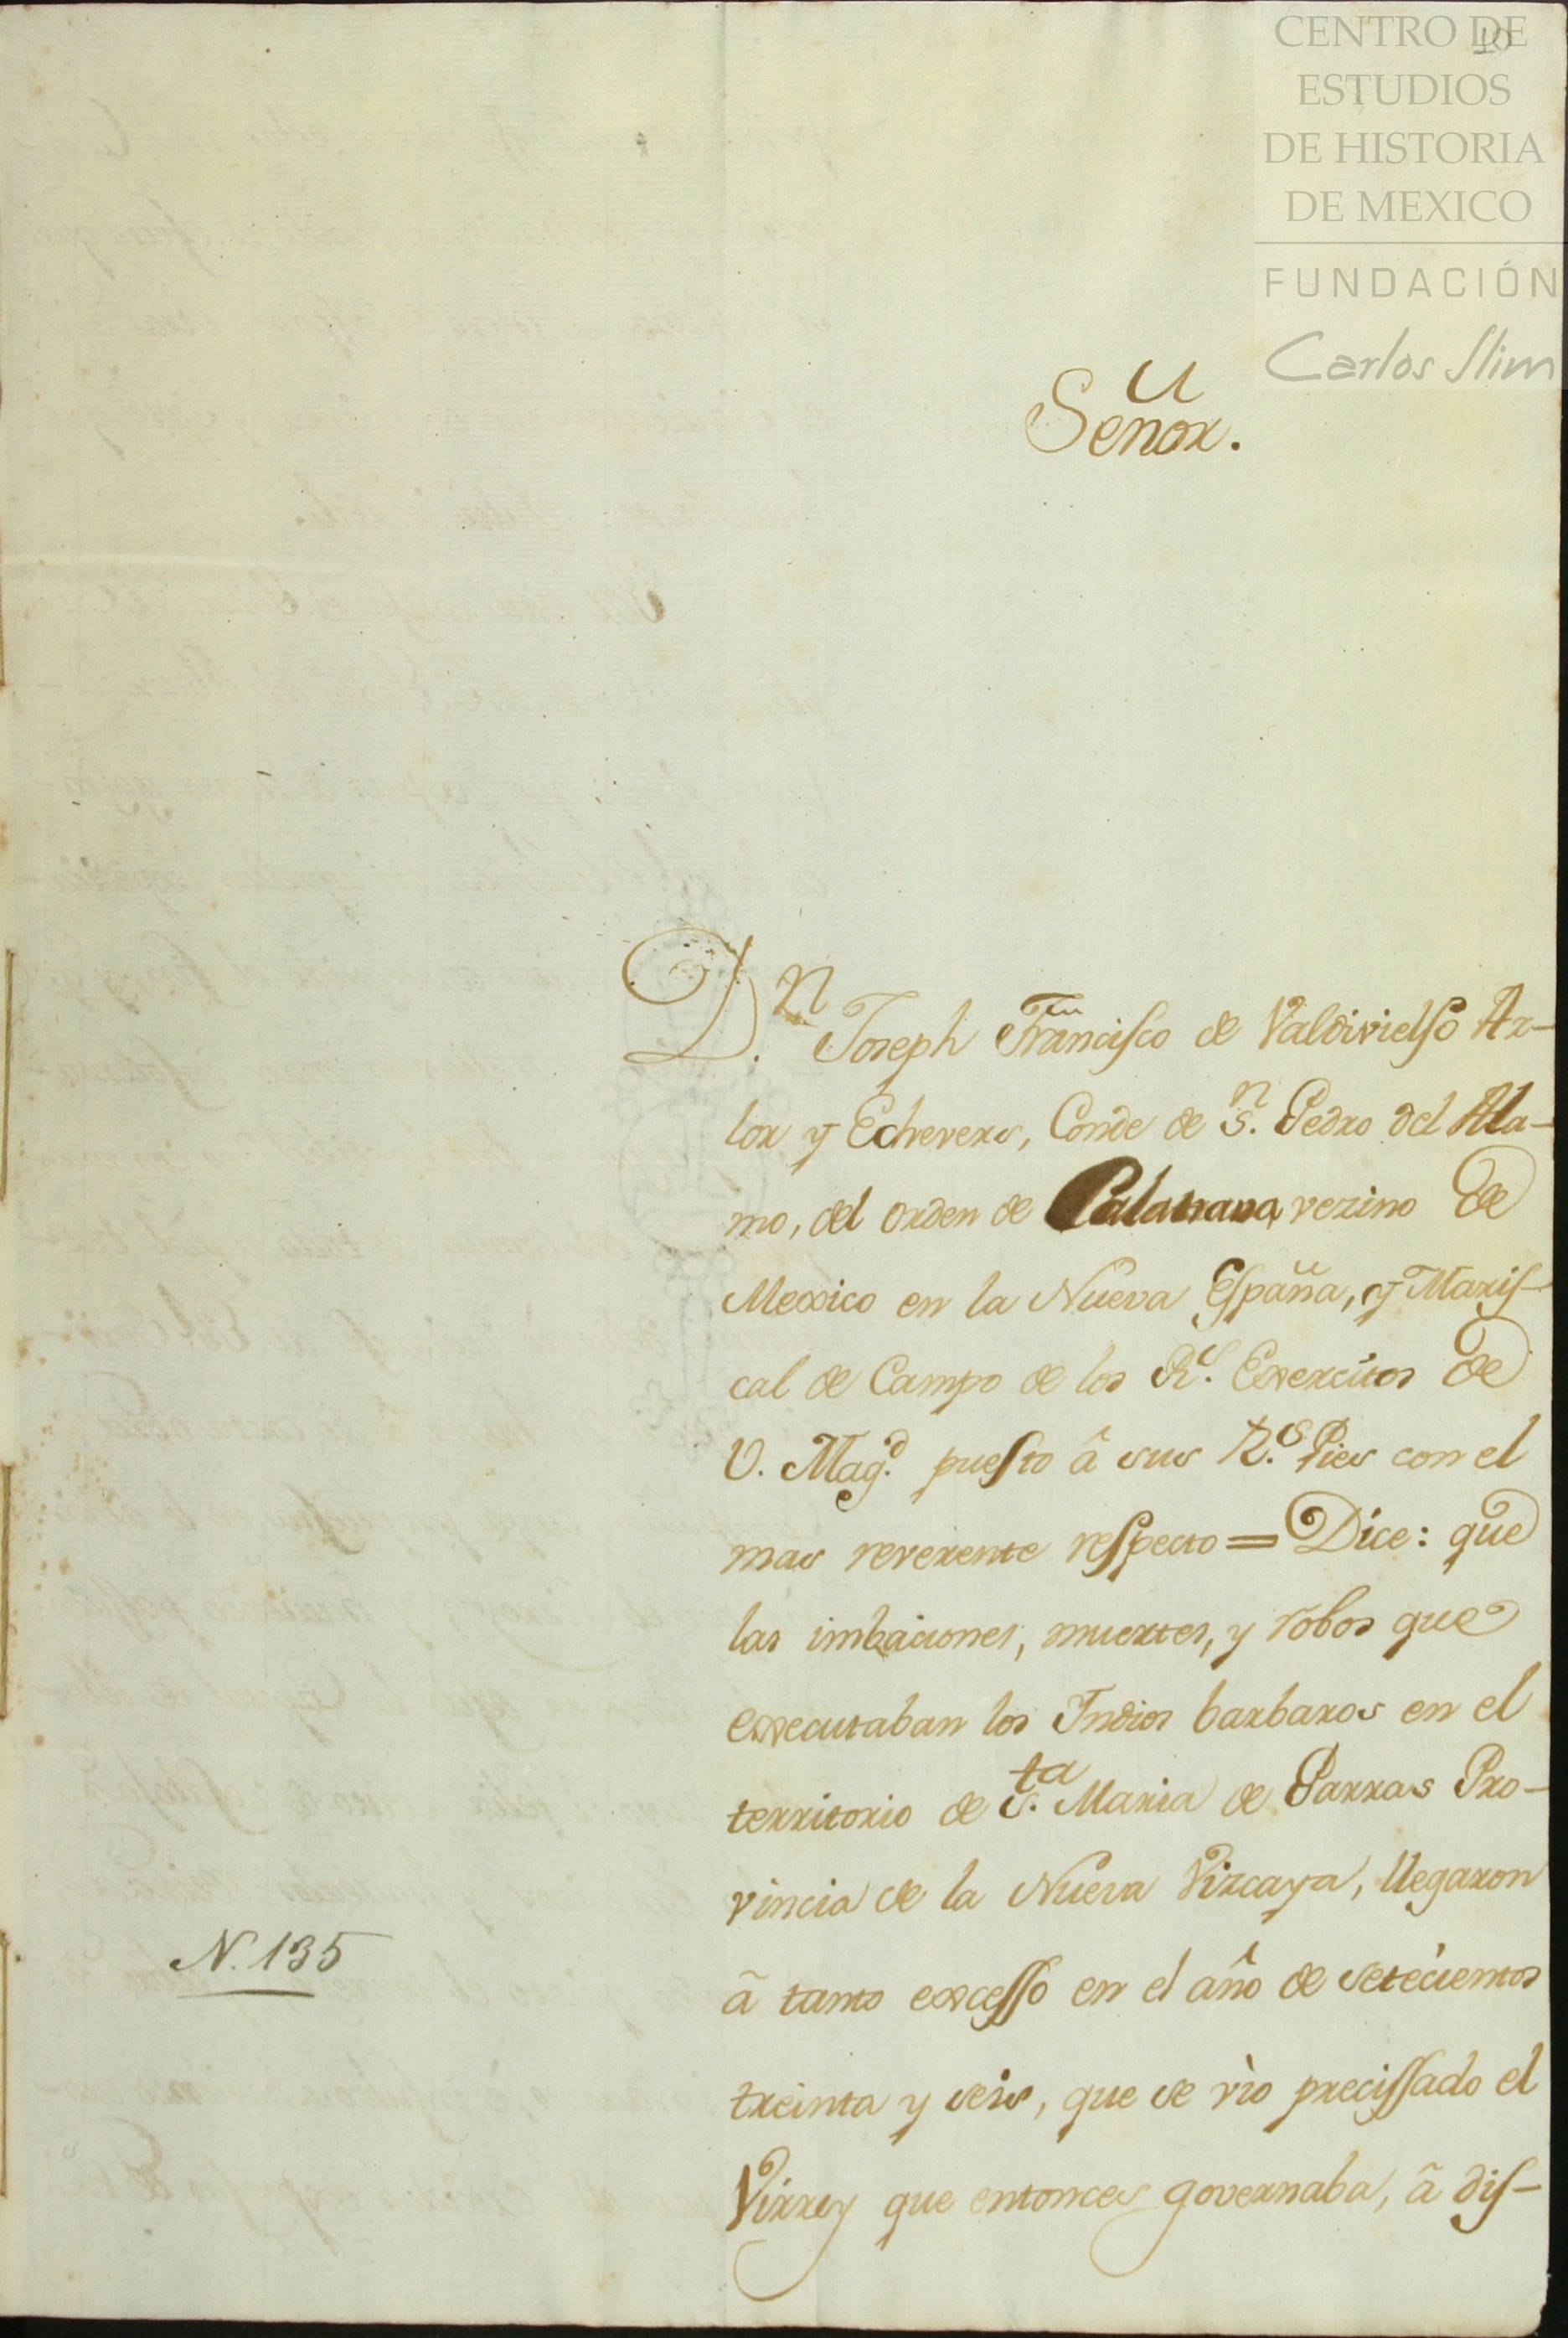 CENTRO DE
ESTUDIOS
DE HISTORIA
DE MEXICO
FUNDACIÓN
Carlos Slim
10
Señor.
D.n Joseph Francisco de Valdivielso Az-
lor y Echevers, Conde de S.n Pedro del Ala-
mo, del orden de Calatrava, vezino de
Mexico en la Nueva España, y Maris-
cal de Campo de los R.s Exercitos de
V. Mag.d puesto â sus R.s Pies con el
mas reverente respecto = Dice: que
las imbaciones, muertes, y robos que
executaban los Indios barbaros en el
territorio de S.ta Maria de Parras Pro-
vincia de la Nueva Vizcaya, llegaron
â tanto excesso en el año de setecientos
treinta y seis, que se viò precissado el
Virrey que entonces governaba, â dis-
N. 135